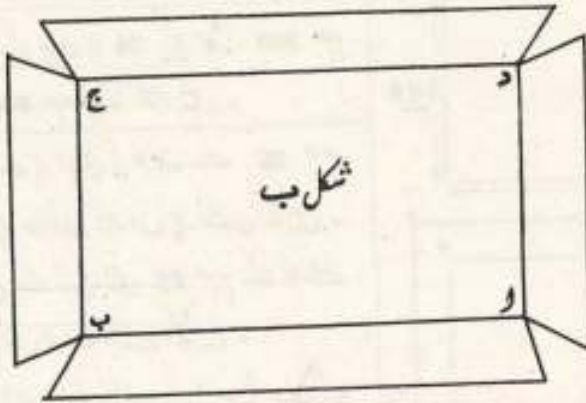 ج
د
شکل ب
ب
ا